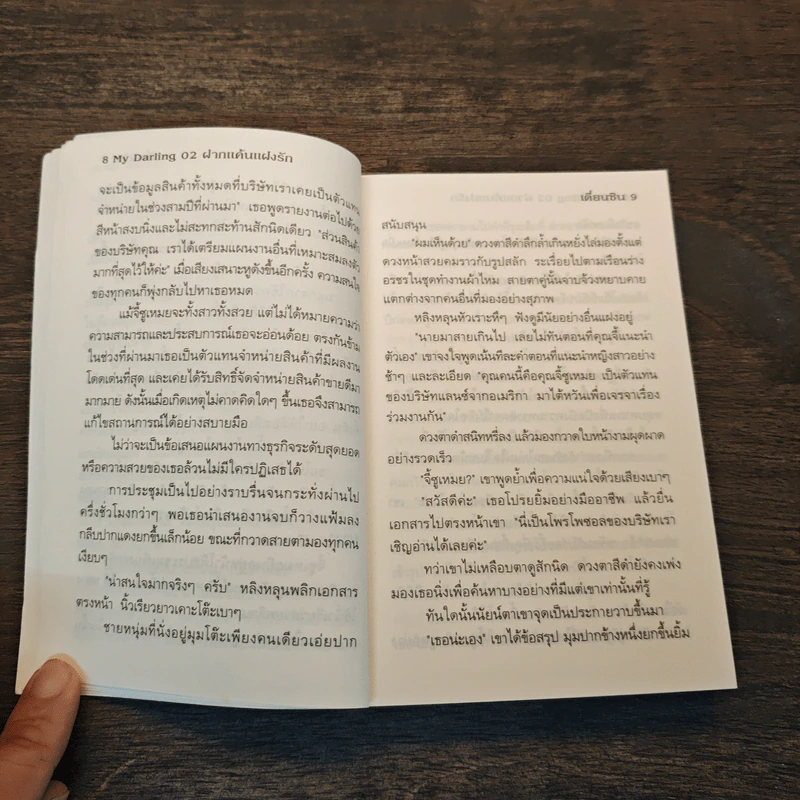 8 My Darling 02 ฝากแค้นแฝงรัก
จะเป็นข้อมูลสินค้าทั้งหมดที่บริษัทเราเคยเป็นตัวแทน
จำหน่ายในช่วงสามปีที่ผ่านมา" เธอพูดรายงานต่อไปด้วย
สีหน้าสงบนิ่งและไม่สะทกสะท้านสักนิดเดียว "ส่วนสินค้า
ของบริษัทคุณ เราได้เตรียมแผนงานอื่นที่เหมาะสมลงตัว
มากที่สุดไว้ให้ค่ะ" เมื่อเสียงเสนาะหูดังขึ้นอีกครั้ง ความสนใจ
ของทุกคนก็พุ่งกลับไปหาเธอหมด
แม้จี้ซูเหมยจะทั้งสาวทั้งสวย แต่ไม่ได้หมายความว่า
ความสามารถและประสบการณ์เธอจะอ่อนด้อย ตรงกันข้าม
ในช่วงที่ผ่านมาเธอเป็นตัวแทนจำหน่ายสินค้าที่มีผลงาน
โดดเด่นที่สุด และเคยได้รับสิทธิ์จัดจำหน่ายสินค้าขายดีมา
มากมาย ดังนั้นเมื่อเกิดเหตุไม่คาดคิดใดๆ ขึ้นเธอจึงสามารถ
แก้ไขสถานการณ์ได้อย่างสบายมือ
ไม่ว่าจะเป็นข้อเสนอแผนงานทางธุรกิจระดับสุดยอด
หรือความสวยของเธอล้วนไม่มีใครปฏิเสธได้
การประชุมเป็นไปอย่างราบรื่นจนกระทั่งผ่านไป
ครึ่งชั่วโมงกว่าๆ พอเธอนำเสนองานจบก็วางแฟ้มลง
กลีบปากแดงยกขึ้นเล็กน้อย ขณะที่กวาดสายตามองทุกคน
เงียบๆ
"น่าสนใจมากจริงๆ ครับ" หลิงหลุนพลิกเอกสาร
ตรงหน้า นิ้วเรียวยาวเคาะโต๊ะเบาๆ
ชายหนุ่มที่นั่งอยู่มุมโต๊ะเพียงคนเดียวเอ่ยปาก
เตี่ยนซิน 9
สนับสนุน
"ผมเห็นด้วย" ดวงตาสีดำลึกล้ำเกินหยั่งไล่มองตั้งแต่
ดวงหน้าสวยคมราวกับรูปสลัก ระเรื่อยไปตามเรือนร่าง
อรชรในชุดทำงานผ้าไหม สายตาคู่นั้นจาบจ้วงหยาบคาย
แตกต่างจากคนอื่นที่มองอย่างสุภาพ
หลิงหลุนหัวเราะหึๆ ฟังดูมีนัยอย่างอื่นแฝงอยู่
"นายมาสายเกินไป เลยไม่ทันตอนที่คุณจี้แนะนำ
ตัวเอง" เขาจงใจพูดเน้นทีละคำตอนที่แนะนำหญิงสาวอย่าง
ช้าๆ และละเอียด "คุณคนนี้คือคุณจี้ซูเหมย เป็นตัวแทน
ของบริษัทแลนซ์จากอเมริกา มาไต้หวันเพื่อเจรจาเรื่อง
ร่วมงานกัน"
ดวงตาดำสนิทหรี่ลง แล้วมองกวาดใบหน้างามผุดผาด
อย่างรวดเร็ว
"จี้ซูเหมย?" เขาพูดย้ำเพื่อความแน่ใจด้วยเสียงเบาๆ
"สวัสดีค่ะ" เธอโปรยยิ้มอย่างมืออาชีพ แล้วยื่น
เอกสารไปตรงหน้าเขา "นี่เป็นโพรโพซอลของบริษัทเรา
เชิญอ่านได้เลยค่ะ"
ทว่าเขาไม่เหลือบตาดูสักนิด ดวงตาสีดำยังคงเพ่ง
มองเธอนิ่งเพื่อค้นหาบางอย่างที่มีแต่เขาเท่านั้นที่รู้
ทันใดนั้นนัยน์ตาเขาจุดเป็นประกายวาบขึ้นมา
"เธอน่ะเอง" เขาได้ข้อสรุป มุมปากข้างหนึ่งยกขึ้นยิ้ม